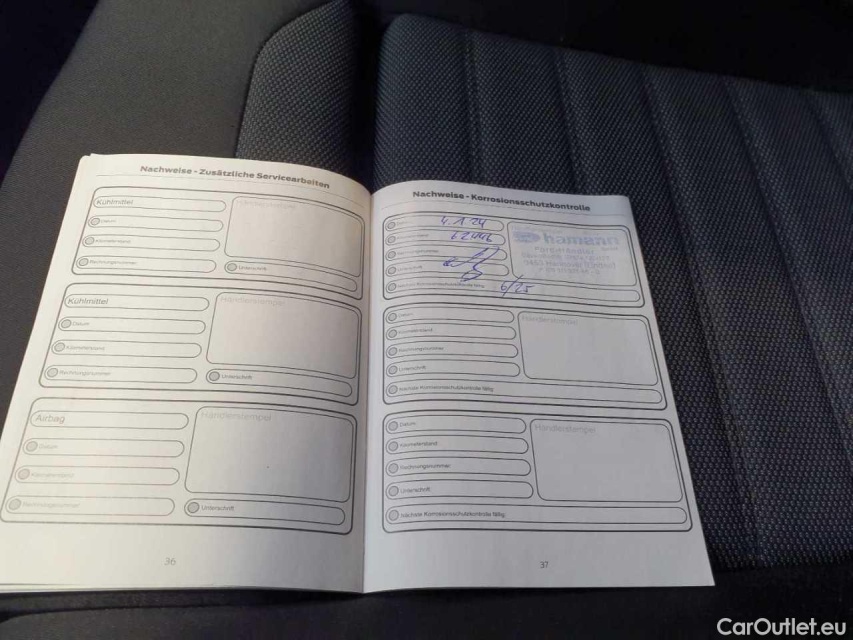 Nachweise - Zusätzliche Servicearbeiten
Kühlmittel
Händlerstempel
Datum
Kilometerstand
Rechnungsnummer
Unterschrift
Kühlmittel
Händlerstempel
Datum
Kilometerstand
Rechnungsnummer
Unterschrift
Airbag
Händlerstempel
Datum
Kilometerstand
Rechnungsnummer
Unterschrift
36
Nachweise - Korrosionsschutzkontrolle
Datum
hamann
Nächste Korrosionsschutzkontrolle fällig
6/25
Datum
Händlerstempel
Kilometerstand
Rechnungsnummer
Unterschrift
Nächste Korrosionsschutzkontrolle fällig
Datum
Händlerstempel
Kilometerstand
Rechnungsnummer
Unterschrift
Nächste Korrosionsschutzkontrolle fällig
37
CarOutlet.eu